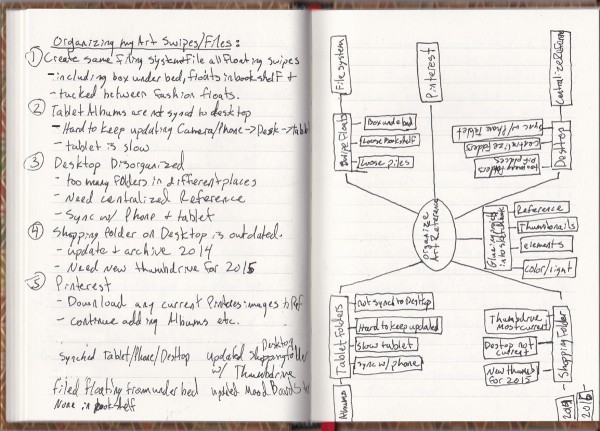 Organizing my Art Swipes/Files:
① Create same filing system + File all Floating swipes
- including box under bed, floats in bookshelf +
- tucked between fashion floats.
② Tablet Albums are not syncd to desktop
- Hard to keep updating Camera/Phone → Desk → tablet
- tablet is slow
③ Desktop Disorganized
- too many Folders in different places
- Need centralized Reference
- Sync w/ Phone + tablet
④ Shopping folder on Desktop is outdated.
- update + archive 2014
- Need new thumbdrive for 2015
⑤ Pinterest
- Download any current Pinterest images to Ref
- continue adding Albums etc.
Synched Tablet/Phone/Desktop
updated Shopping Folder
Desktop
w/ Thumbdrive
Filed floating from under bed
updated Mood Boards
None in bookshelf
File System
Swipe Floats
Box under bed
Loose bookshelf
Loose Files
Pinterest
Centralize Reference
Desktop
Sync w/ Phone Tablet
Centralize Folders
too many Folders
diff places
Organize
Art Reference
into sketchbook
Reference
Thumbnails
elements
color/light
Tablet Folders
Albums
not sync to Desktop
Hard to keep updated
Slow tablet
Sync w/ phone
Shopping Folder
Thumbdrive
Most current
Destop not
current
New thumb
for 2015
2014
2015